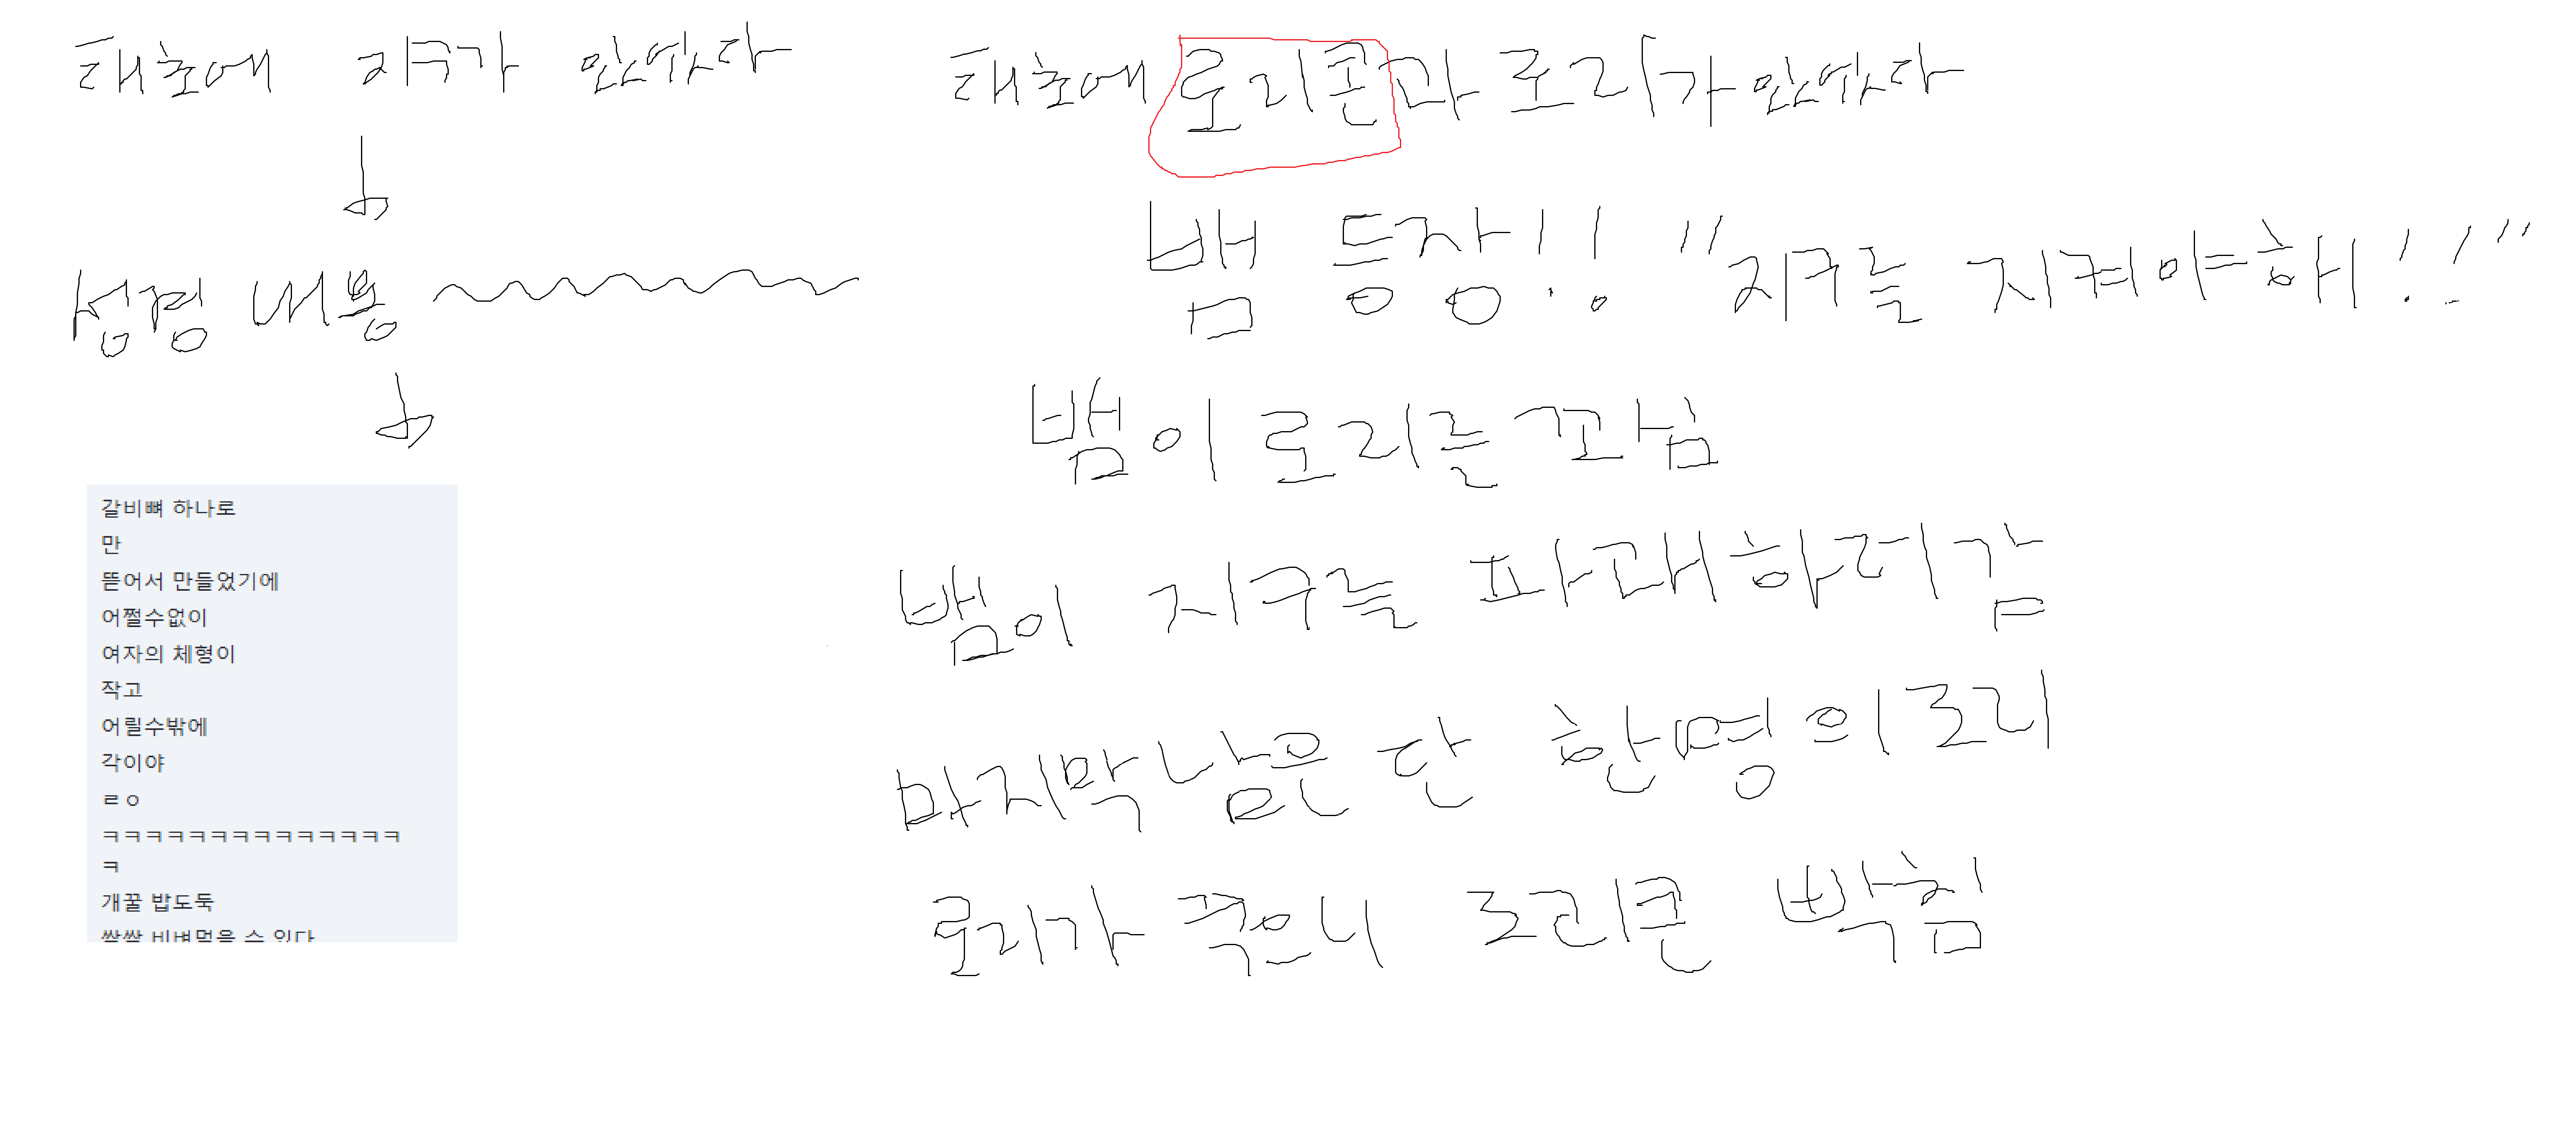 태초에 지구가 있었다
성경 내용
갈비뼈 하나로
만
뜯어서 만들었기에
어쩔수없이
여자의 체형이
작고
어릴수밖에
각이야
ㄹㅇ
ㅋㅋㅋㅋㅋㅋㅋㅋㅋㅋㅋㅋㅋㅋ
ㅋ
개꿀 밥도둑
싹싹 비벼먹을 수 있다
태초에 로리콘과 로리가 있었다
뱀 등장!! "지구를 지켜야해!!"
뱀이 로리를 꼬심
뱀이 지구를 파괘하러감
마지막 남은 단 한명의 로리
로리가 죽으니 로리콘 빡침